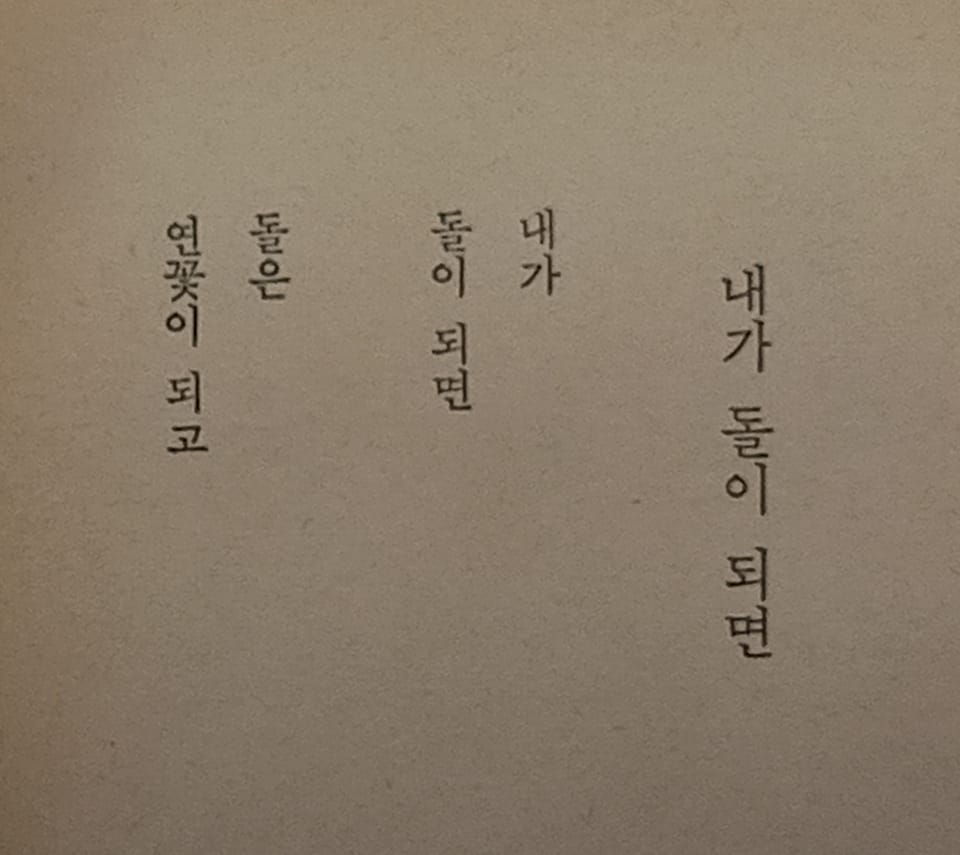 내가 돌이 되면
내가
돌이 되면
돌은
연꽃이 되고